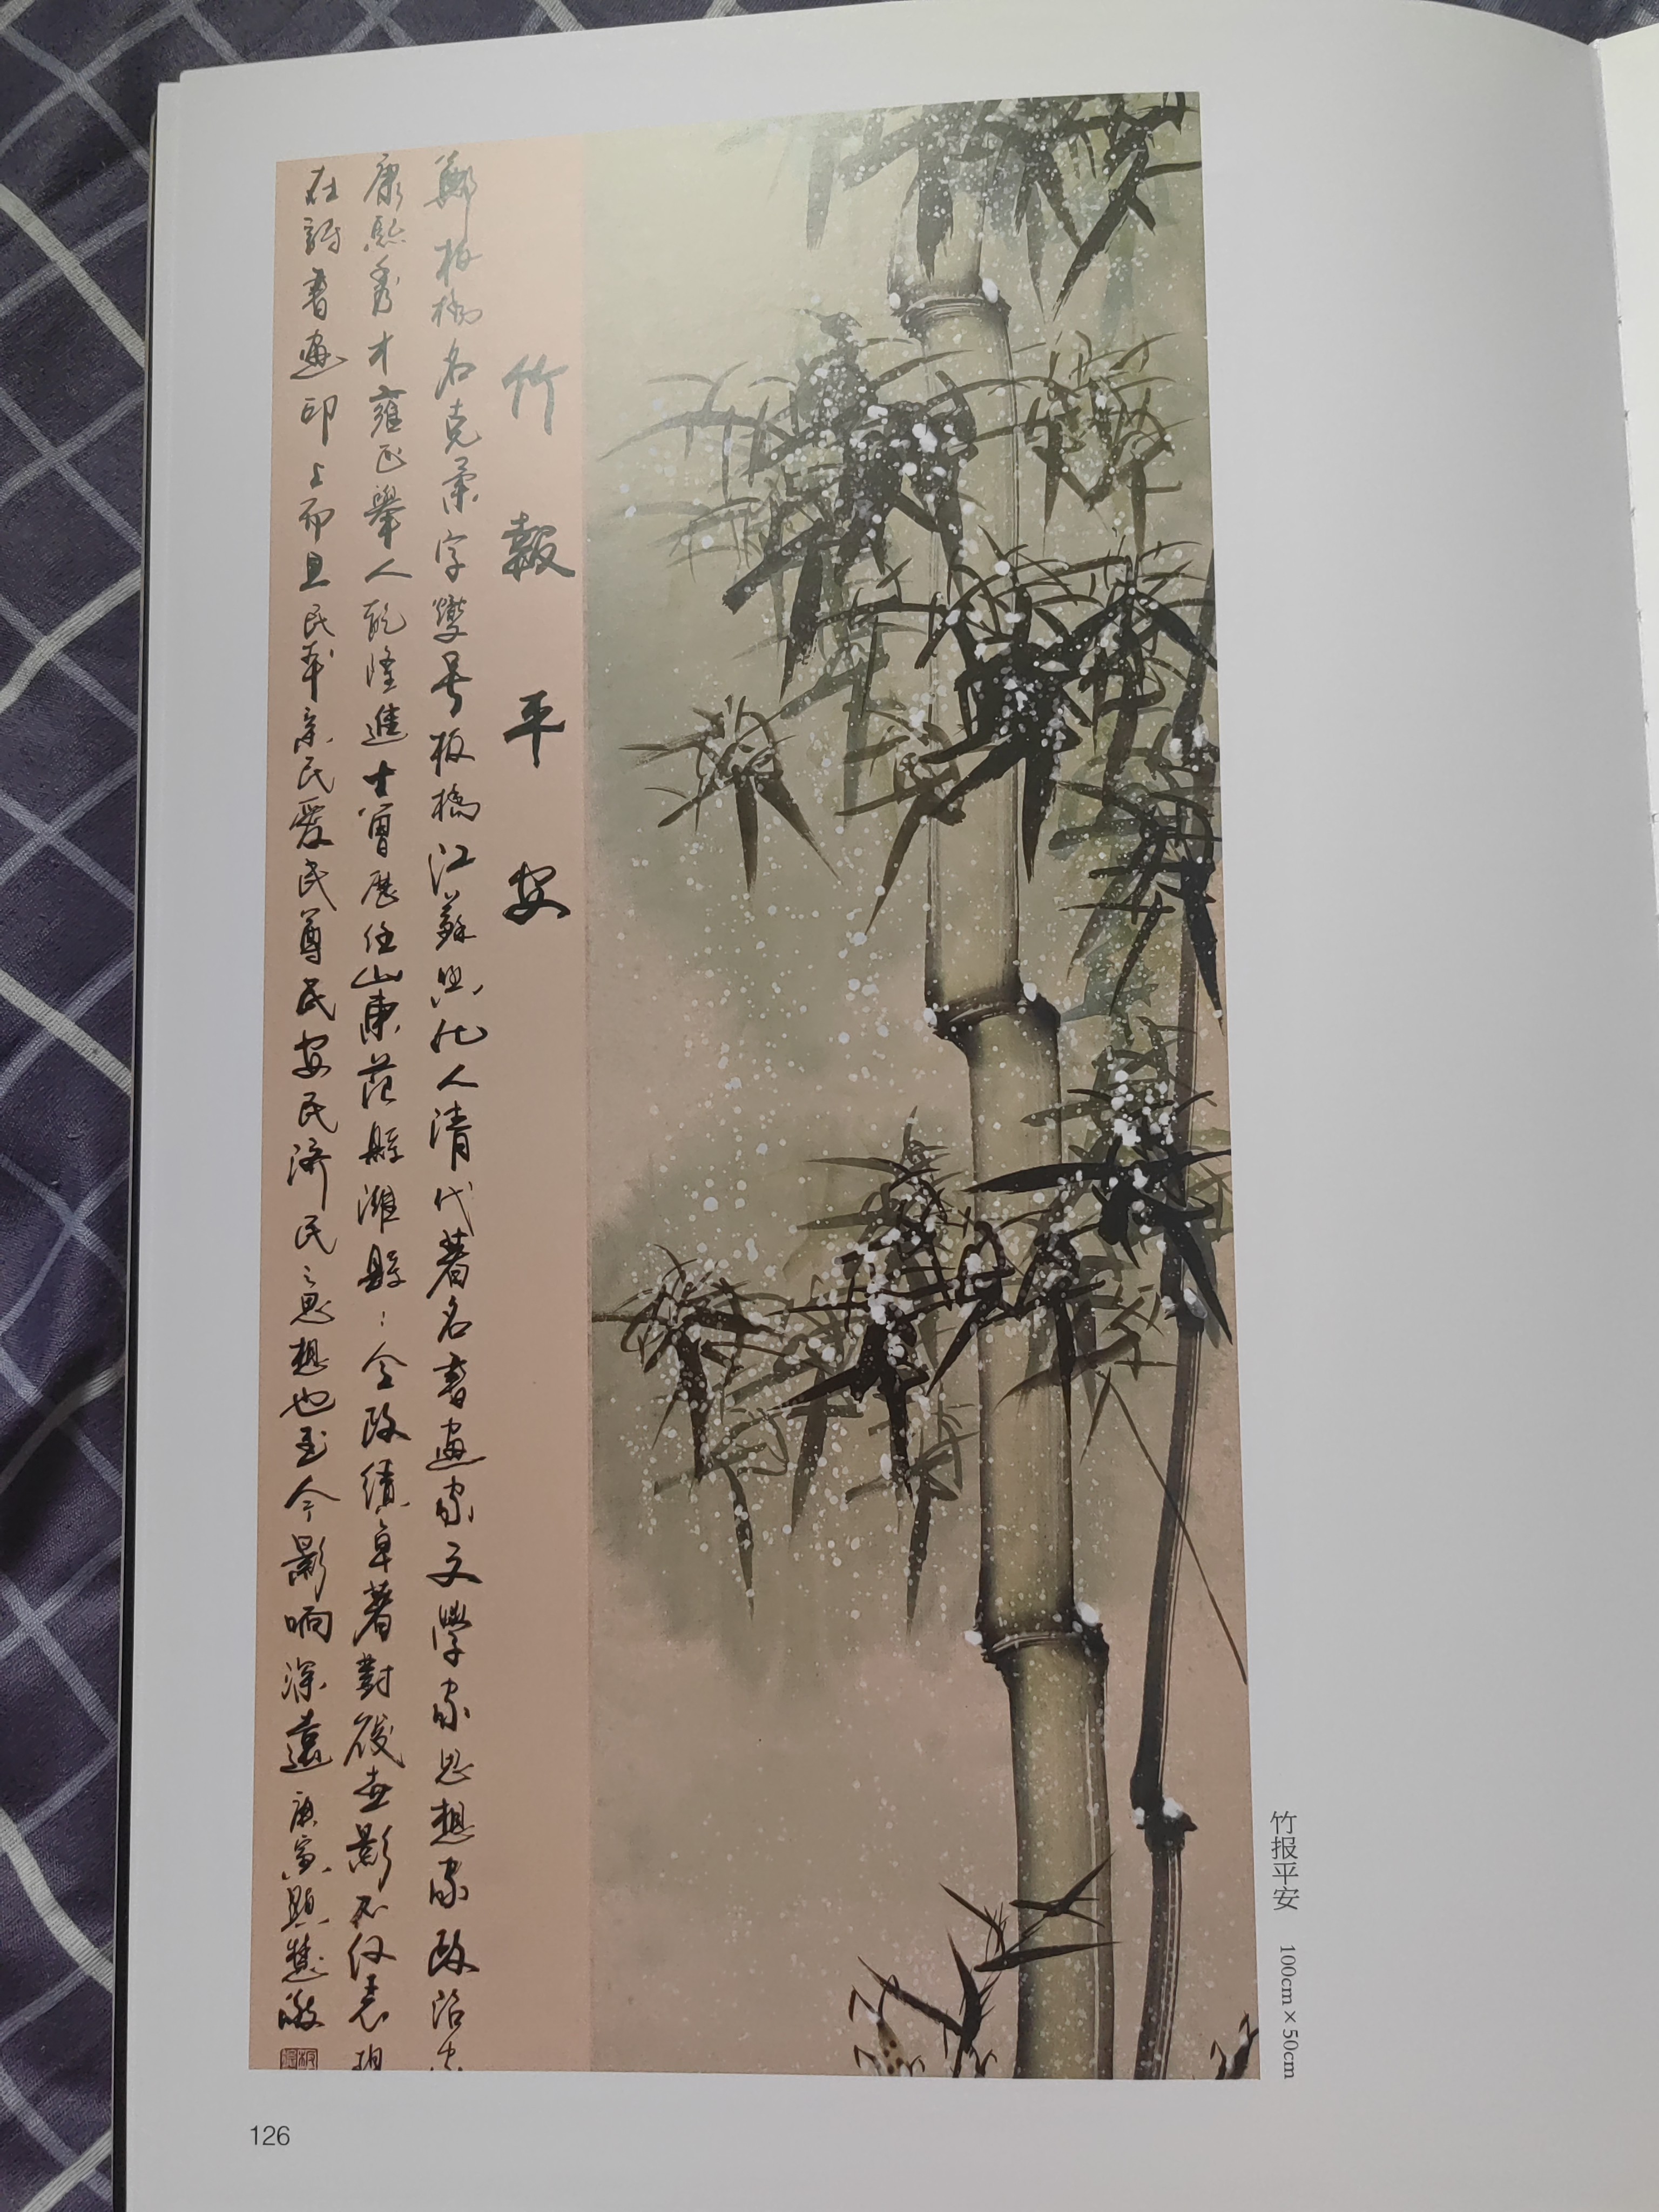 竹報平安
鄭板橋名克柔字燮号板橋江蘇興化人清代著名書画家文學家思想家政治家
康熙秀才雍正舉人乾隆進士曾歷任山東范縣濰縣令政績卓著對後世影不仅表現
在詩書画印上而且民本亲民愛民尊民安民濟民之思想也至今影响深遠庚寅顯慧敬
竹报平安 100cm×50cm
126